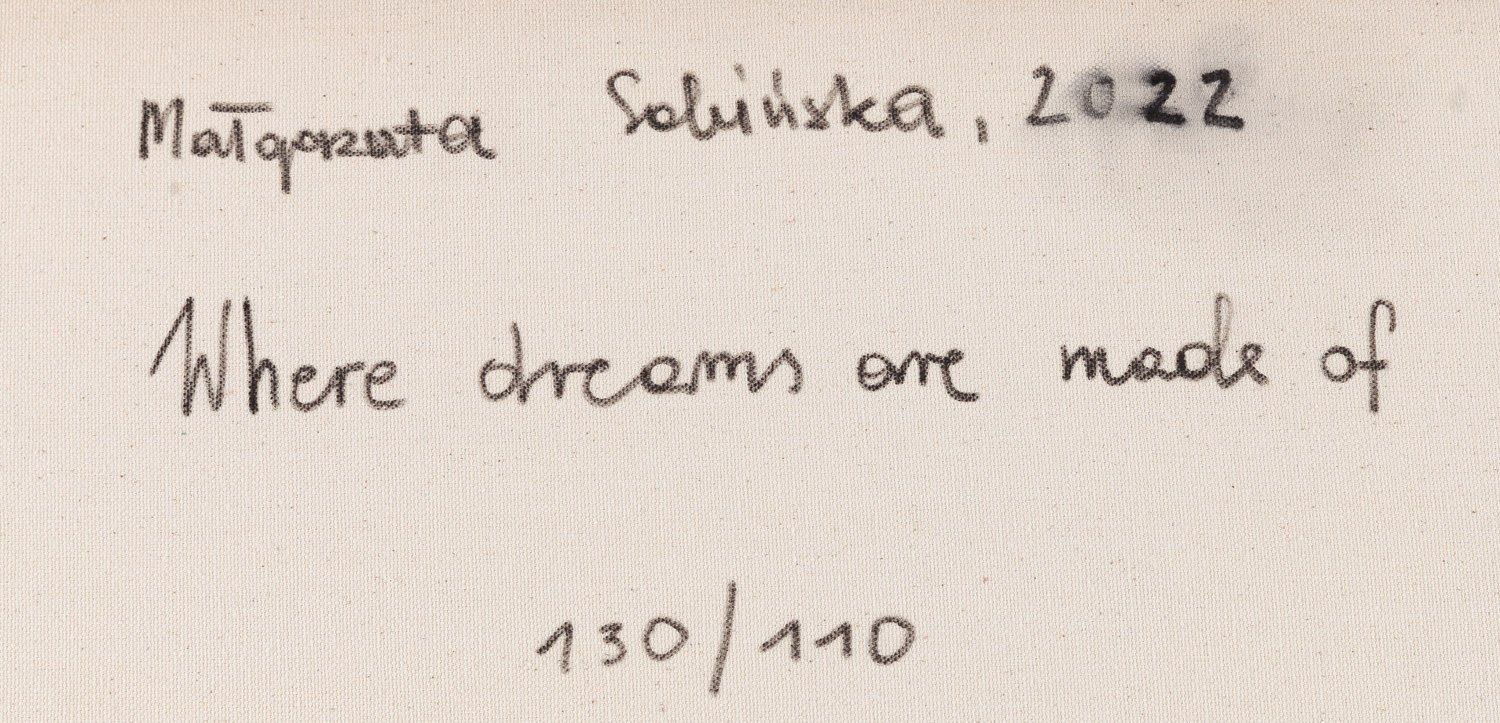 Małgorzata Sobińska, 2022
Where dreams are made of
130/110